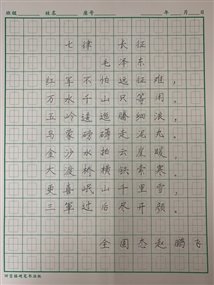 班级 姓名 座号 年 月 日
七律 长征
毛泽东
红军不怕远征难,
万水千山只等闲。
五岭逶迤腾细浪,
乌蒙磅礴走泥丸。
金沙水拍云崖暖,
大渡桥横铁索寒。
更喜岷山千里雪,
三军过后尽开颜。
赵鹏飞